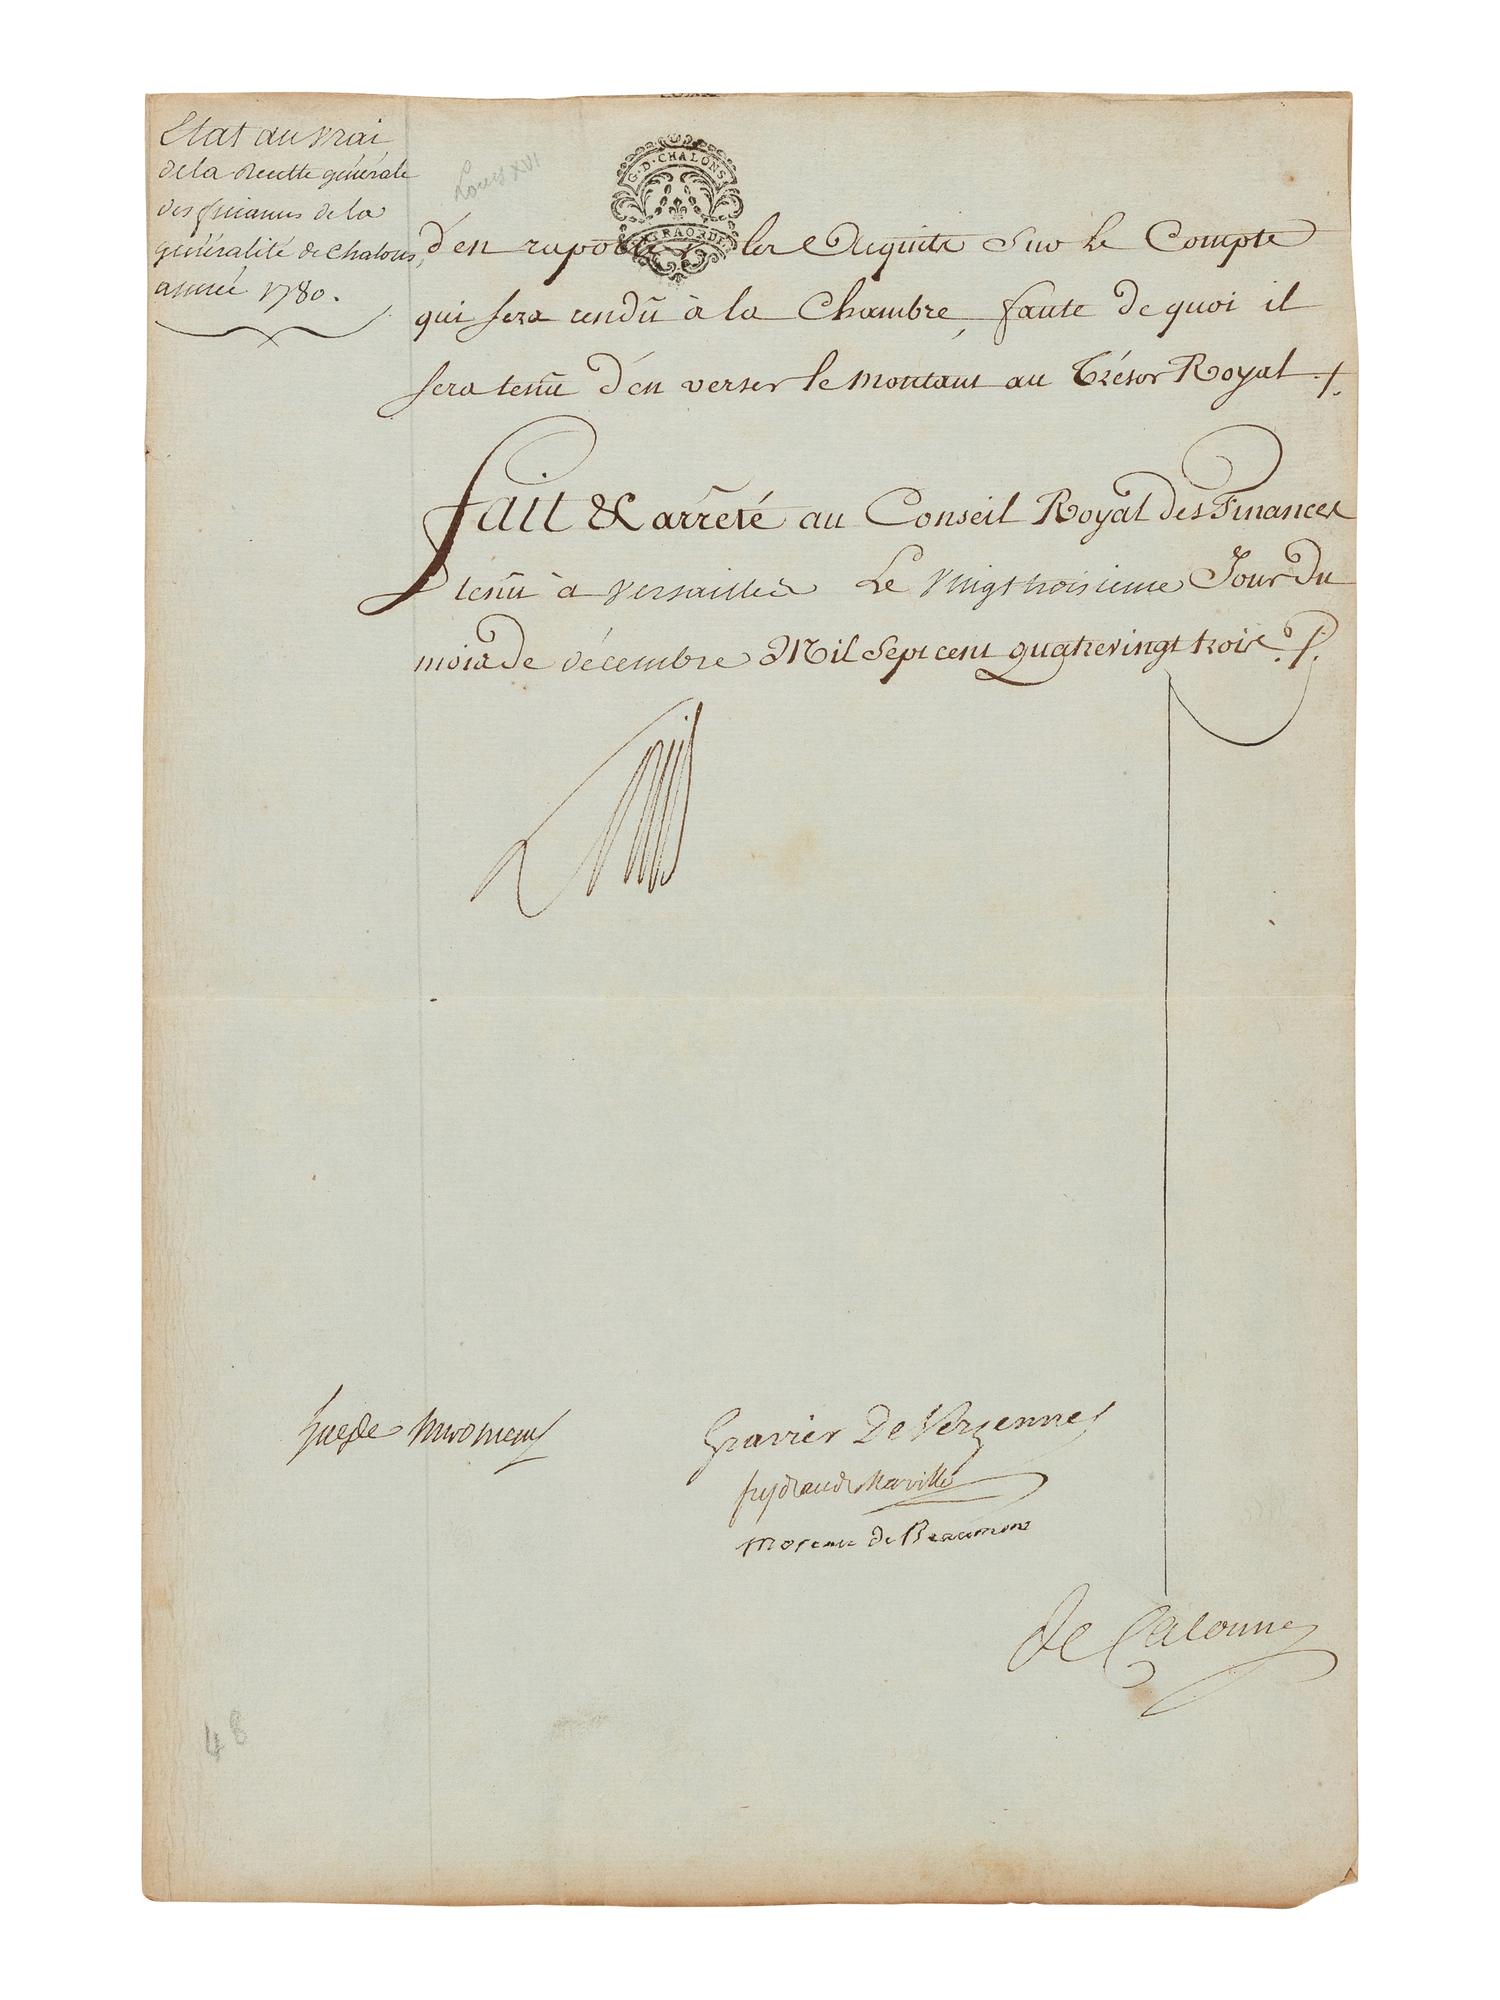 Etat au vrai
de la Recette générale
des finances de la
généralité de Chalons,
année 1780.
Louis XVI
G·D·CHALONS
EXTRAORDRE
d'en raporter les Acquits sur le Compte
qui sera rendû à la Chambre, faute de quoi il
sera tenû d'en verser le montant au Trésor Royal ./.
fait & arrêté au Conseil Royal des Finances
tenû à Versailles Le Vingt troisieme Jour du
mois de décembre Mil Sept cent quatrevingt trois ./.
Louis
hue de Miromenil
Gravier De Vergennes
feydeau de Marville
Moreau de Beaumont
de Calonne
48